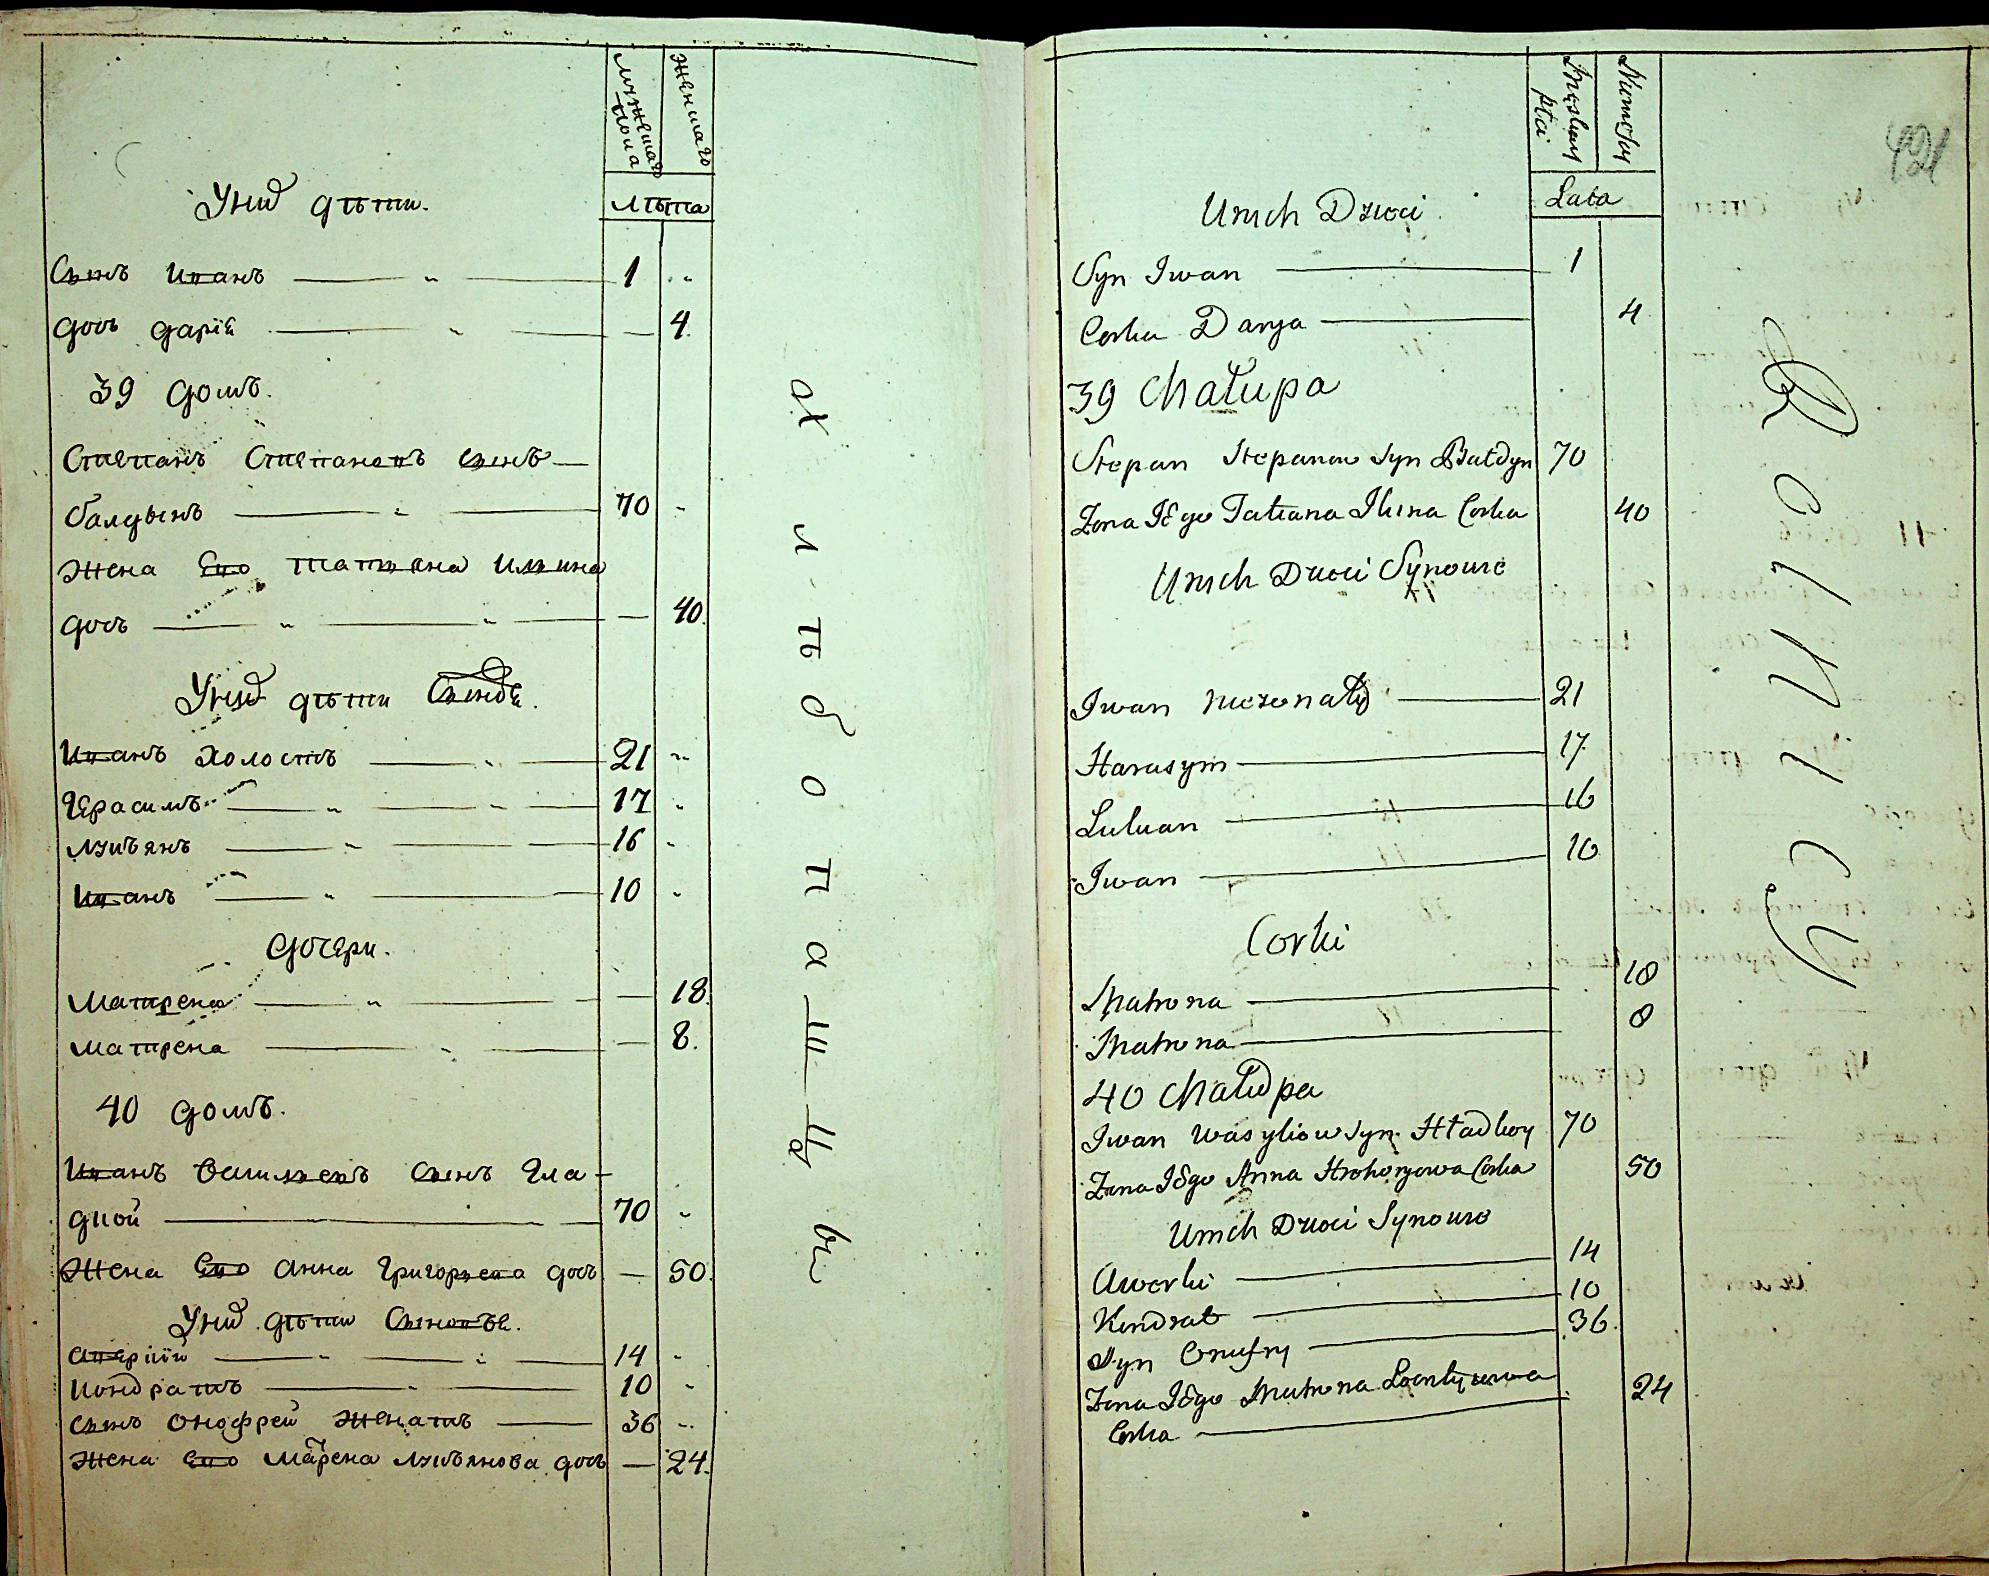 мужеска пола
женска го
лѣта
У них дѣти.
Сынъ Иванъ — „ — 1 „
дочъ дарiя — „ — 4.
39 домъ.
Степанъ Степановъ сынъ —
балдынъ — „ — 70 „
жена Его татьяна Ильина
дочъ — „ — „ — 40.
У них дѣти Сыновья.
Иванъ холостъ — „ — 21 „
Герасимъ — „ — „ — 17 „
лукъянъ — „ — 16 „
Иванъ — „ — 10 „
дочери.
матрена — „ — 18.
матрена — „ — 8.
40 домъ.
Иванъ василъевъ сынъ Гла-
дкой — „ — 70 „
жена Его анна григорьева дочъ — 50.
У них дѣти Сыновъе.
аверкiй — „ — „ — 14 „
кондратъ — „ — 10 „
сынъ онофрей женатъ — 36 „
жена его матрена лукъянова дочъ — 24.
хлѣбопашцы
Męskiey płci
Niewieściey
Lata
421
U nich Dzieci
Syn Iwan — 1
Corka Darya — 4
39 Chałupa
Stepan Stepanow Syn Bałdyn 70
Zona Iego Tatiana Ilina Corka 40
U nich Dzieci Synowie
Iwan niezonaty — 21
Harasym — 17
Lukian — 16
Iwan — 10
Corki
Matrona — 18
Matrona — 8
40 Chałupa
Iwan Wasyliow Syn Hładkoy 70
Zona Iego Anna Hrohoryowa Corka 50
U nich Dzieci Synowie
Awerki — 14
Kondrat — 10
Syn Onufry — 36
Zona Iego Matrona
Corka — 24
Rolnicy